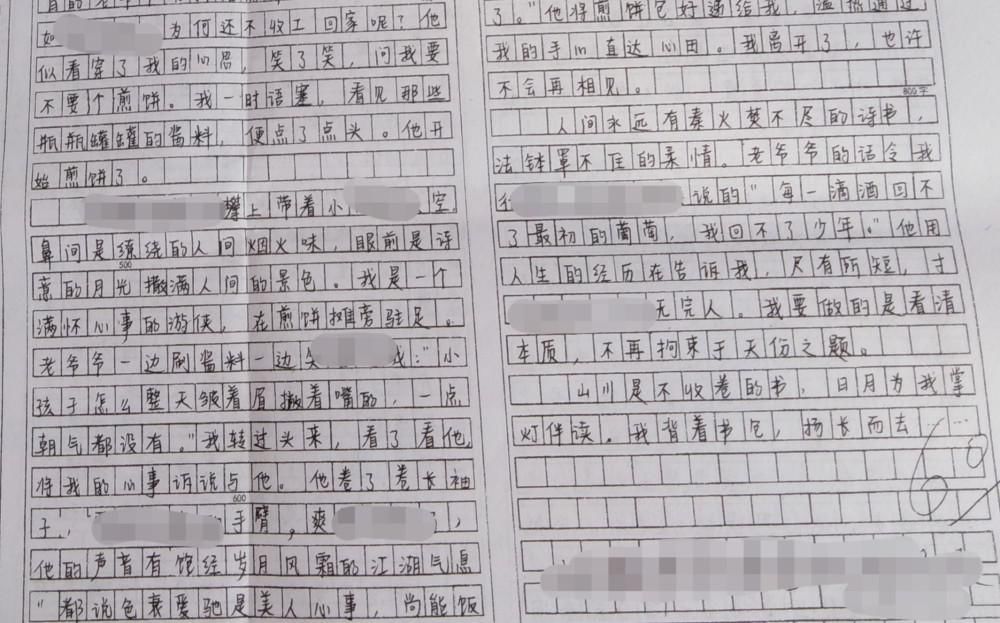 如
为何还不收工回家呢？他
似看穿了我的心思，笑了笑，问我要
不要个煎饼。我一时语塞，看见那些
瓶瓶罐罐的酱料，便点了点头。他开
始煎饼了。
攀上带着小
空
鼻间是缭绕的人间烟火味，眼前是诗
500
意的月光撒满人间的景色。我是一个
满怀心事的游侠，在煎饼摊旁驻足。
老爷爷一边刷酱料一边
：“小
孩子怎么整天皱着眉撇着嘴的，一点
朝气都没有。”我转过头来，看了看他，
将我的心事诉说与他。他卷了卷长袖
600
子，
手臂，爽
，
他的声音有饱经岁月风霜的江湖气息
“都说色衰爱驰是美人心事，尚能饭
了。”他将煎饼包好递给我，温热通过
我的手心直达心田。我离开了，也许
不会再相见。
800字
人间永远有秦火焚不尽的诗书，
法钵罩不住的柔情。老爷爷的话令我
说的“每一滴酒回不
了最初的葡萄，我回不了少年。”他用
人生的经历在告诉我，尺有所短，寸
无完人。我要做的是看清
本质，不再拘束于天份之题。
山川是不收卷的书，日月为我掌
灯伴读。我背着书包，扬长而去……